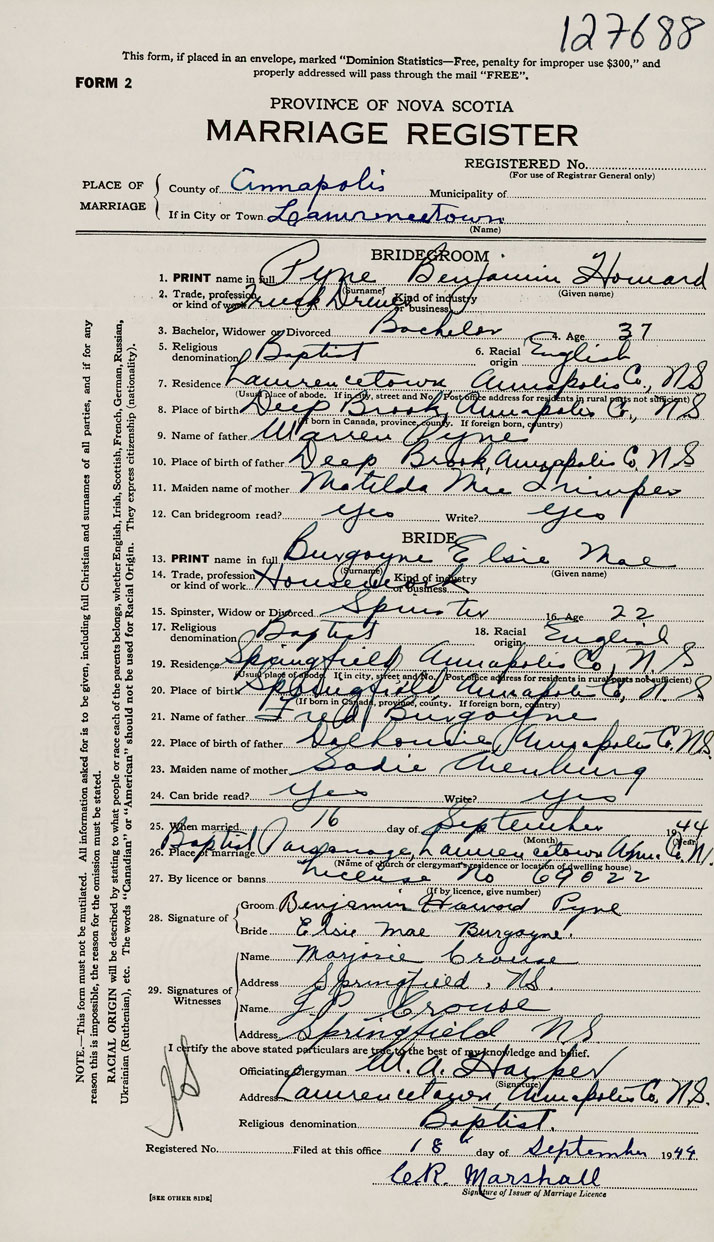 127688
This form, if placed in an envelope, marked "Dominion Statistics—Free, penalty for improper use $300," and
properly addressed will pass through the mail "FREE".
FORM 2
PROVINCE OF NOVA SCOTIA
MARRIAGE REGISTER
REGISTERED No.
(For use of Registrar General only)
PLACE OF MARRIAGE
County of Annapolis Municipality of
If in City or Town Lawrencetown
(Name)
BRIDEGROOM
1. PRINT name in full Pyne Benjamin Howard
(Surname) (Given name)
2. Trade, profession or kind of work Truck Driver Kind of industry or business
3. Bachelor, Widower or Divorced Bachelor 4. Age 37
5. Religious denomination Baptist 6. Racial origin English
7. Residence Lawrencetown Annapolis Co., NS
(Usual place of abode. If in city, street and No. Post office address for residents in rural parts not sufficient)
8. Place of birth Deep Brook, Annapolis Co, NS
(If born in Canada, province, county. If foreign born, country)
9. Name of father Warren Pyne
10. Place of birth of father Deep Brook, Annapolis Co, N.S
11. Maiden name of mother Matilda Mae Trimper
12. Can bridegroom read? Yes Write? Yes
BRIDE
13. PRINT name in full Burgoyne Elsie Mae
(Surname) (Given name)
14. Trade, profession or kind of work Housework Kind of industry or business
15. Spinster, Widow or Divorced Spinster 16. Age 22
17. Religious denomination Baptist 18. Racial origin English
19. Residence Springfield Annapolis Co, N.S
(Usual place of abode. If in city, street and No. Post office address for residents in rural parts not sufficient)
20. Place of birth Springfield, Annapolis Co, N.S
(If born in Canada, province, county. If foreign born, country)
21. Name of father Fred Burgoyne
22. Place of birth of father Dalhousie, Annapolis Co, N.S.
23. Maiden name of mother Sadie Arenburg
24. Can bride read? Yes Write? Yes
25. When married 16 day of September 1944
(Month) (Year)
26. Place of marriage Baptist Parsonage, Lawrencetown Ann. Co, N.
(Name of church or clergyman's residence or location of dwelling house)
27. By licence or banns License No 69022
(If by licence, give number)
28. Signature of
Groom Benjamin Howard Pyne
Bride Elsie Mae Burgoyne.
29. Signatures of Witnesses
Name Marjorie Crouse
Address Springfield, NS.
Name P Crouse
Address Springfield NS
I certify the above stated particulars are true to the best of my knowledge and belief.
Officiating clergyman M. A. Harper
(Signature)
Address Lawrencetown, Annapolis Co. N.S.
Religious denomination Baptist.
Registered No. Filed at this office 18 day of September 1944
C.R. Marshall
Signature of Issuer of Marriage Licence
[SEE OTHER SIDE]
NOTE.—This form must not be mutilated. All information asked for is to be given, including full Christian and surnames of all parties, and if for any
reason this is impossible, the reason for the omission must be stated.
RACIAL ORIGIN will be described by stating to what people or race each of the parents belongs, whether English, Irish, Scottish, French, German, Russian,
Ukrainian (Ruthenian), etc. The words "Canadian" or "American" should not be used for Racial Origin. They express citizenship (nationality).